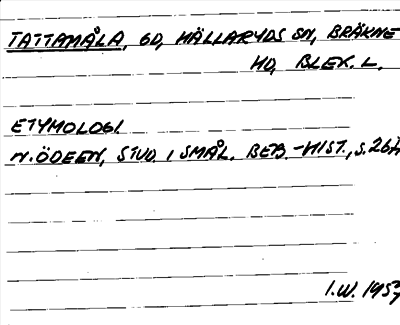 TATTAMÅLA, GD, HÄLLARYDS SN, BRÄKNE
HD, BLEK. L.
ETYMOLOGI
N. ÖDEEN, STUD. I SMÅL. BEB.-HIST., S.
I.W. 1957